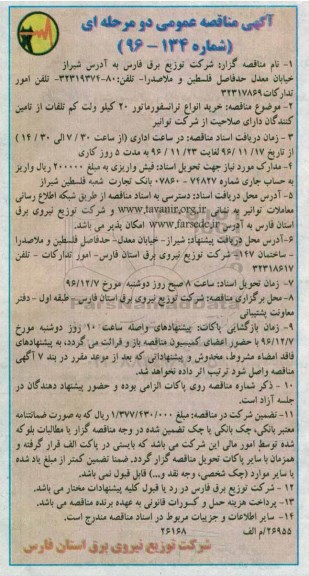 آگهی مناقصه عمومی دو مرحله ای
(شماره ۱۳۴ – ۹۶)
۱- نام مناقصه گزار: شرکت توزیع برق فارس به آدرس شیراز
خیابان معدل حدفاصل فلسطین و ملاصدرا- تلفن: ۸۰-۳۲۳۱۹۳۷۴ تلفن امور
تدارکات ۳۲۳۱۷۸۶۹
۲- موضوع مناقصه: خرید انواع ترانسفورماتور ۲۰ کیلو ولت کم تلفات از تامین
کنندگان دارای صلاحیت از شرکت توانیر
۳- زمان دریافت اسناد مناقصه: در ساعت اداری (از ساعت ۳۰ / ۷ الی ۳۰ / ۱۴ )
از تاریخ ۱۷ / ۱۱ / ۹۶ لغایت ۲۳ / ۱۱ / ۹۶ به مدت ۵ روز کاری
۴- مدارک مورد نیاز جهت تحویل اسناد: فیش واریزی به مبلغ ۲۰۰۰۰۰ ریال واریز
به حساب جاری شماره ۷۴۸۲۷ - ۰۷۸۶۰ بانک تجارت شعبه فلسطین شیراز
۵- آدرس محل دریافت اسناد: دسترسی به اسناد مناقصه از طریق شبکه اطلاع رسانی
معاملات توانیر به نشانی www.tavanir.org.ir و شرکت توزیع نیروی برق
استان فارس به آدرس www.farsedc.ir امکان پذیر می باشد.
۶- آدرس محل دریافت پیشنهاد: شیراز- خیابان معدل- حدفاصل فلسطین و ملاصدرا
- ساختمان ۱۴۷- شرکت توزیع نیروی برق استان فارس- امور تدارکات - تلفن
۳۲۳۱۸۶۱۷
۷- زمان تحویل اسناد: ساعت ۸ صبح روز دوشنبه مورخ ۹۶/۱۲/۷
۸- محل برگزاری مناقصه: شرکت توزیع نیروی برق استان فارس - طبقه اول - دفتر
معاونت پشتیبانی
۹- زمان بازگشایی پاکات: پیشنهادهای واصله ساعت ۱۰ روز دوشنبه مورخ
۹۶/۱۲/۷ با حضور اعضای کمیسیون مناقصه باز و قرائت می گردد، به پیشنهادهای
فاقد امضاء مشروط، مخدوش و پیشنهاداتی که بعد از موعد مقرر در بند ۷ آگهی
مناقصه واصل شود ترتیب اثر داده نخواهد شد.
۱۰ - ذکر شماره مناقصه روی پاکات الزامی بوده و حضور پیشنهاد دهندگان در
جلسه آزاد است.
۱۱- تضمین شرکت در مناقصه: مبلغ ۱/۳۷۷/۴۳۰/۰۰۰ ریال که به صورت ضمانتنامه
معتبر بانکی، چک بانکی یا چک تضمین شده در وجه مناقصه گزار یا مطالبات بلوکه
شده توسط امور مالی این شرکت می باشد که بایستی در پاکت الف قرار گرفته و
همزمان با سایر پاکات تحویل مناقصه گزار گردد. ضمنا تضمین کمتر از مبلغ یاد شده
یا سایر موارد (چک شخصی، وجه نقد و...) قابل قبول نمی باشد.
۱۲ - شرکت توزیع برق فارس در رد یا قبول کلیه پیشنهادات مختار می باشد.
۱۳- پرداخت هزینه حمل و کسورات قانونی به عهده برنده مناقصه می باشد.
۱۴- سایر اطلاعات و جزییات مربوط در اسناد مناقصه مندرج است.
۲۶۹۵۵/م الف ۲۶۱۶۸
شرکت توزیع نیروی برق استان فارس